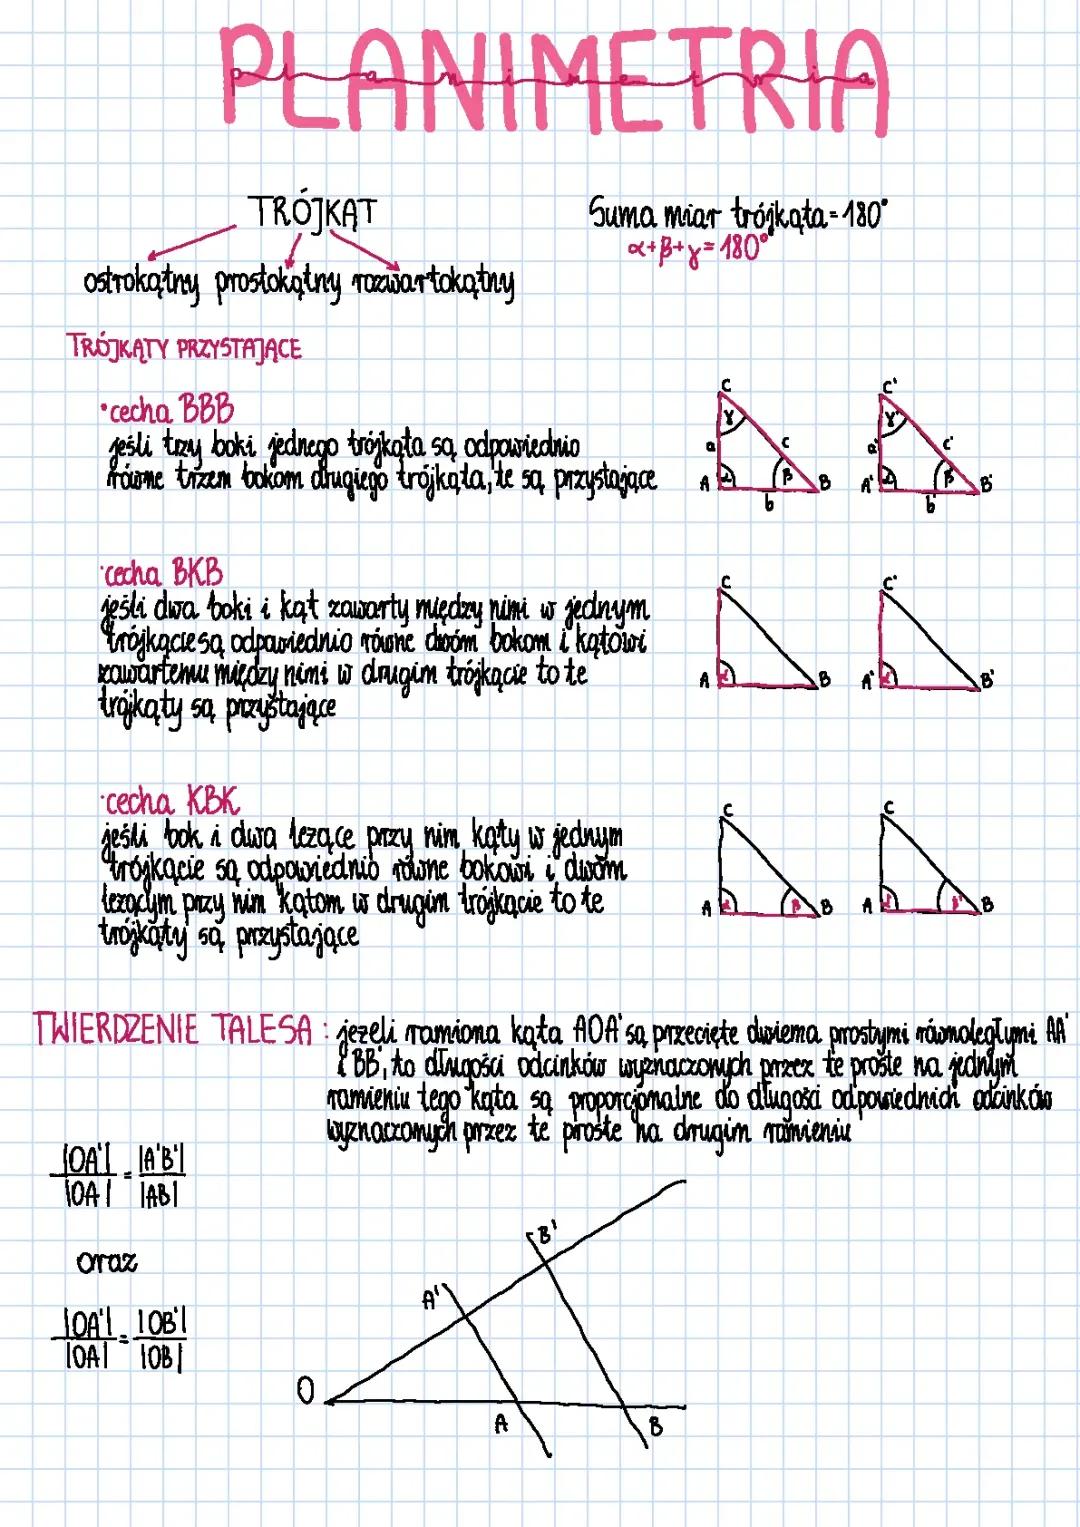 PLANIMETRIA
planimetria
TRÓJKĄT
ostrokątny prostokątny rozwartokątny
Suma miar trójkąta = 180°
α+β+γ = 180°
TRÓJKĄTY PRZYSTAJĄCE
•cecha BBB
jeśli trzy boki jednego trójkąta są odpowiednio
równe trzem bokom drugiego trójkąta, te są przystające
C
γ
a
c
A
α
β
B
b
C'
γ'
a'
c'
A'
α
β
B'
b'
•cecha BKB
jeśli dwa boki i kąt zawarty między nimi w jednym
trójkącie są odpowiednio równe dwóm bokom i kątowi
zawartemu między nimi w drugim trójkącie to te
trójkąty są przystające
C
A
α
B
C'
A'
α'
B'
•cecha KBK
jeśli bok i dwa leżące przy nim kąty w jednym
trójkącie są odpowiednio równe bokowi i dwóm
leżącym przy nim kątom w drugim trójkącie to te
trójkąty są przystające
C
A
α
β
B
C
A
α'
β'
B
TWIERDZENIE TALESA : jeżeli ramiona kąta AOA' są przecięte dwiema prostymi równoległymi AA'
i BB', to długości odcinków wyznaczonych przez te proste na jednym
ramieniu tego kąta są proporcjonalne do długości odpowiednich odcinków
wyznaczonych przez te proste na drugim ramieniu
|OA'| = |A'B'|
|OA| |AB|
oraz
|OA'| = |OB'|
|OA| |OB|
B'
A'
O
A
B